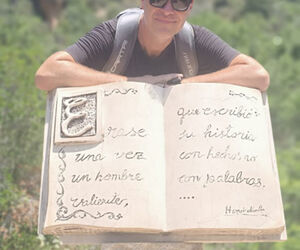 Erase
una vez
un hombre
valiente,
que escribió
su historia
con hechos no
con palabras....